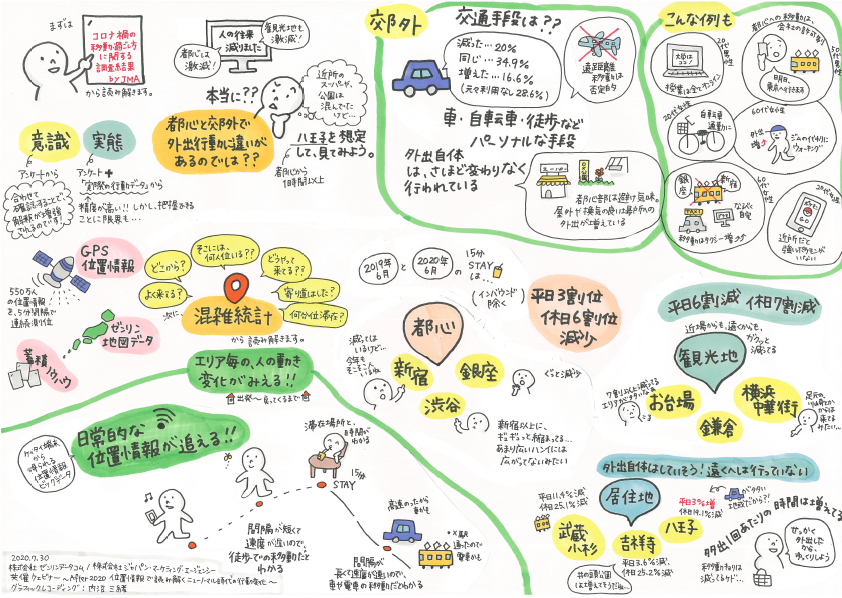 まずは
コロナ禍の
移動の過ごし方
に関する
調査結果
by JMA
から読み解きます。
都心は
激減!
人の往来
減りました
観光地も
激減!
本当に??
近所の
スーパーや、
公園は
混んでたけど…
意識
実態
アンケートから
アンケート+
「実際の行動データ」から
精度が高い!! しかし、把握できる
ことに限界も…
合わせて
確認することで、
解釈が増強
されるのです!
都心と交外で
外出行動に違いが
あるのでは??
八王子を想定
して、見てみよう。
都心から
1時間以上
交外
交通手段は??
減った…20%
同じ…34.9%
増えた…16.6%
(元々利用なし28.6%)
遠距離
移動は
否定的
車・自転車・徒歩など
パーソナルな手段
外出自体
は、さほど変わりなく
行われている
スーパー
都心部は避け気味。
屋外や換気の良い場所への
外出が増えている
こんな例も
20代男性
大学は
コン!
授業は全てオンライン
都心への移動は、
会社の許可有り
50代男性
明日、
東京へ行きます
20代女性
自転車
通勤に
60代女性
外出
増
ジムの代わりに
ウォーキング
銀座
新宿
60代女性
TAXI
なるべく
自宅
移動はタクシー増
20代女性
近所だと
強いポケモンが
いない
GPS
位置情報
550万人
の位置情報
を、5分間隔で
連続測位
ゼンリン
地図データ
蓄積ノウハウ
どこから?
そこには、
何人位いる??
どうやって
来てる??
よく来てる?
寄り道はした?
何分位滞在?
次に
混雑統計
から読み解きます。
エリア毎の、人の動き
変化がみえる!!
出発〜戻ってくるまで
2019年
6月
と
2020年
6月
の
15分
STAY
は…
(インバウンド
除く)
平日3割位
休日6割位
減少
都心
新宿
銀座
渋谷
減っては
いるけど…
今年も
そこそこ人
いるね
ぐっと減少
新宿以上に、
ギュギュッと縮まってる…
あまり広いハンイには
広がらないみたい
平日6割減 休日7割減
近場からも、遠くからも、
ガクッと
減ってる
観光地
お台場
鎌倉
横浜
中華街
7割以上減ってる
エリアがたすうだなぁ
日常的な
位置情報が追える!!
ケータイ端末
から
得られる
位置情報
ビッグデータ
滞在場所と、
時間が
わかる
15分
STAY
間隔が短くて
速度が遅いので、
徒歩での移動だと
わかる
高速のったから
車かも
×駅
通ったので
電車かも
間隔が
長くて速度が速いので、
車や電車の移動だとわかる
外出自体はしていそう!遠くへは行っていない
居住地
平日11.4%減
休日25.1%減
武蔵
小杉
吉祥寺
八王子
平日3%増
休日19.1%減
平日3.6%減
休日25.2%減
井の頭公園
は増えてそうだな…
外出1回あたりの時間は増えてる
移動わりは
減ってるケド…
せっかく
外出した
から、
ゆっくりしよう
2020.7.30
株式会社ゼンリンデータコム / 株式会社ジャパン・マーケティング・エージェンシー
共催ウェビナー 〜After2020 位置情報で読み解くニューノーマル時代の行動変化〜
グラフィックレコーディング: